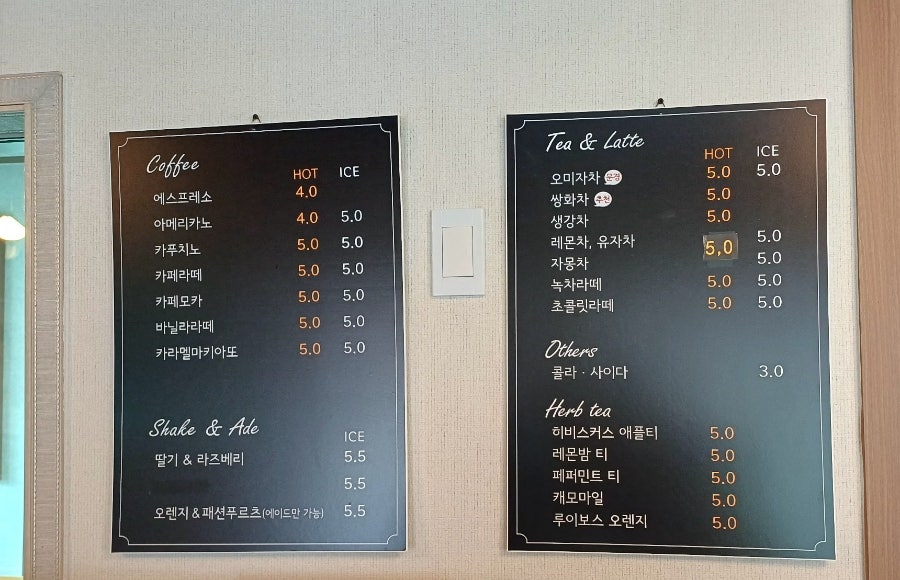 Coffee
HOT ICE
에스프레소 4.0
아메리카노 4.0 5.0
카푸치노 5.0 5.0
카페라떼 5.0 5.0
카페모카 5.0 5.0
바닐라라떼 5.0 5.0
카라멜마키아또 5.0 5.0
Shake & Ade
ICE
딸기 & 라즈베리 5.5
5.5
오렌지 & 패션푸르츠(에이드만 가능) 5.5
Tea & Latte
HOT ICE
오미자차 문경 5.0 5.0
쌍화차 추천 5.0
생강차 5.0
레몬차, 유자차 5,0 5.0
자몽차 5.0
녹차라떼 5.0 5.0
초콜릿라떼 5.0 5.0
Others
콜라 · 사이다 3.0
Herb tea
히비스커스 애플티 5.0
레몬밤 티 5.0
페퍼민트 티 5.0
캐모마일 5.0
루이보스 오렌지 5.0